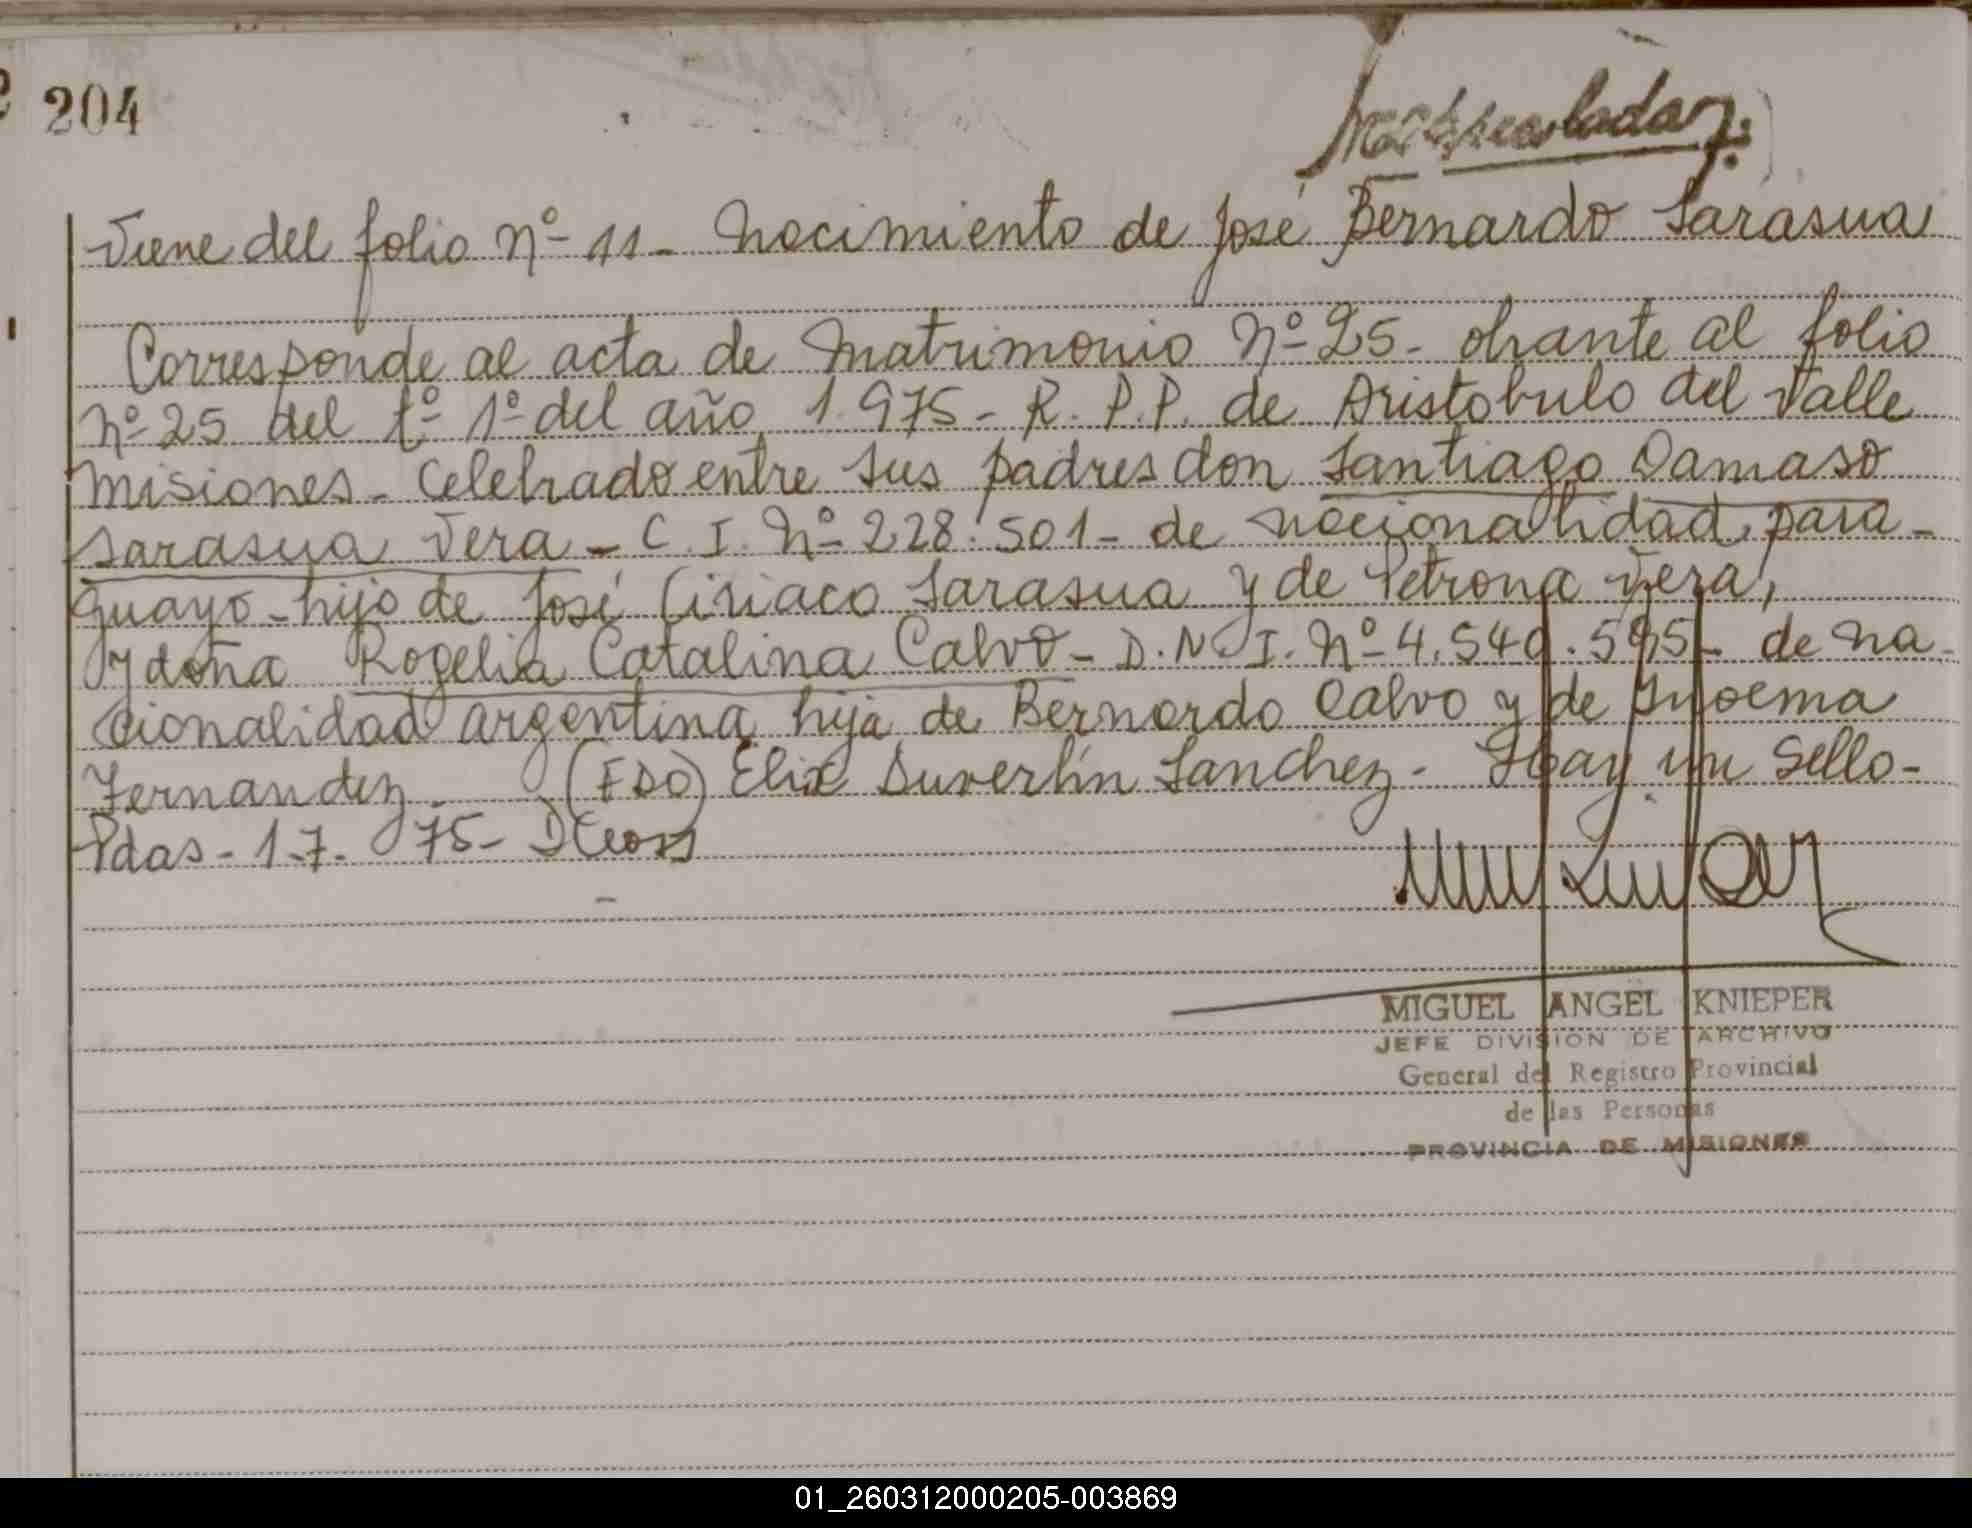 204
Viene del folio Nº 11 - Nacimiento de José Bernardo Sarasua
Corresponde al acta de Matrimonio Nº 25 - obrante al folio
Nº 25 del tº 1º del año 1.975 - R. P. P. de Aristobulo del Valle
Misiones - Celebrado entre sus padres don Santiago Damaso
Sarasua Vera - C. I. Nº 228.501 - de nacionalidad para-
guayo - hijo de José Ciriaco Sarasua y de Petrona Vera,
y doña Rogelia Catalina Calvo - D. N. I. Nº 4.540.595 - de na-
cionalidad argentina hija de Bernardo Calvo y de
Fernandez. (FDO) Elix Duverlín Sanchez - Hay un Sello -
Pdas - 1-7- 75 -
MIGUEL ANGEL KNIEPER
JEFE DIVISION DE ARCHIVO
General del Registro Provincial
de las Personas
PROVINCIA DE MISIONES
01_260312000205-003869